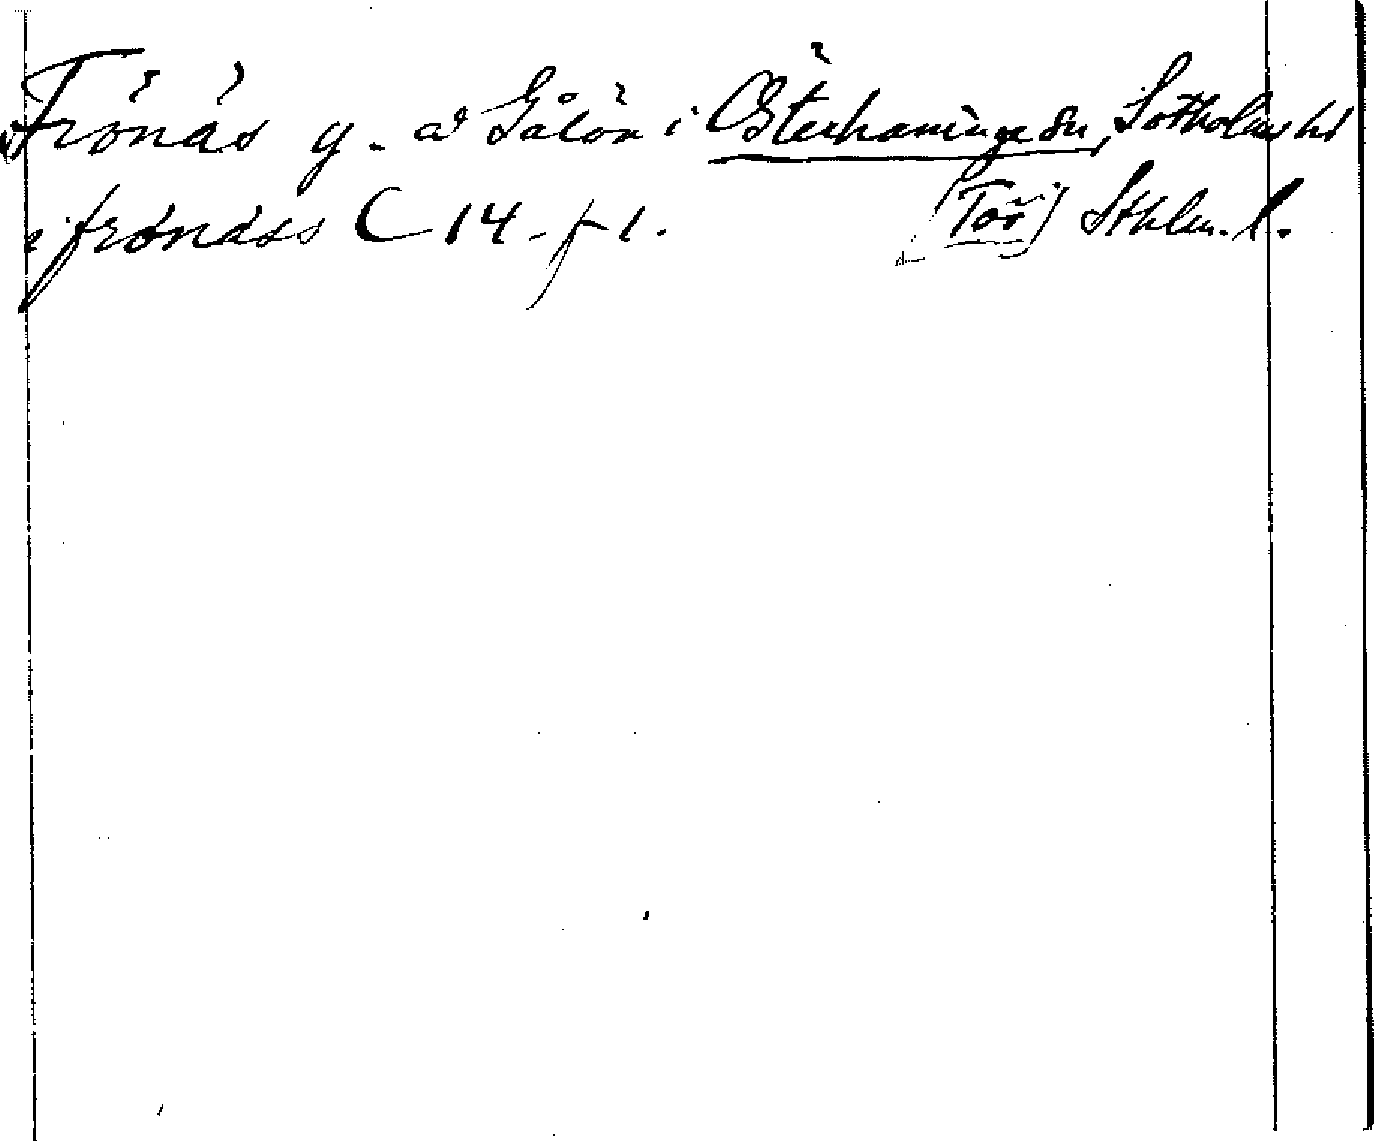 Frönäs g. å Gålön i Österhaninge sn, Sotholms hd
i frönäss C 14. f 1. [Tor] Sthlm. l.